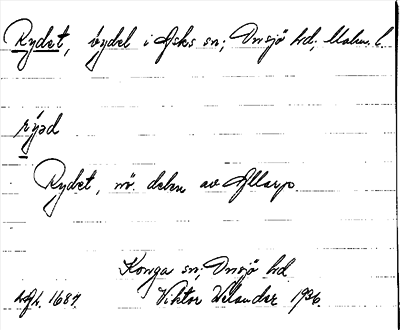 Rydet, bydel i Asks sn; Onsjö hd; Malm. l.
rýəd
Rydet, nö. delen av Allarp.
Konga sn; Onsjö hd
Viktor Velander 1936.